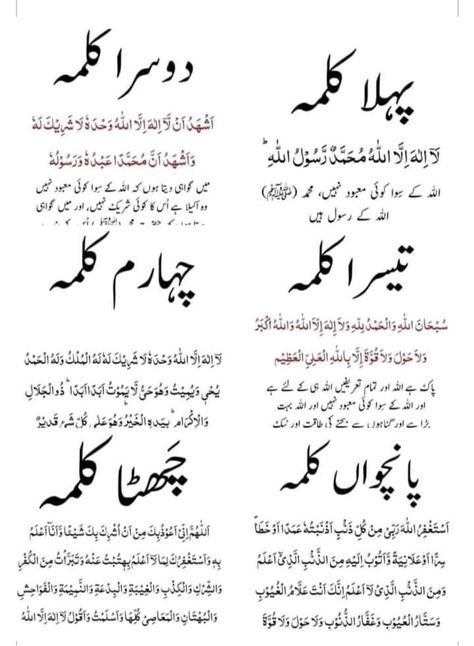 پہلا کلمہ
لَآ اِلٰهَ اِلَّا اللهُ مُحَمَّدٌ رَّسُوْلُ اللهِ ؕ
اللہ کے سِوا کوئی معبود نہیں، محمد (ﷺ)
اللہ کے رسول ہیں
دوسرا کلمہ
اَشْهَدُ اَنْ لَّآ اِلٰهَ اِلَّا اللهُ وَحْدَهٗ لَا شَرِيْكَ لَهٗ
وَاَشْهَدُ اَنَّ مُحَمَّدًا عَبْدُهٗ وَرَسُوْلُهٗ
میں گواہی دیتا ہوں کہ اللہ کے سوا کوئی معبود نہیں
وہ اکیلا ہے اُس کا کوئی شریک نہیں، اور میں گواہی
تیسرا کلمہ
سُبْحَانَ اللهِ وَالْحَمْدُ لِلّٰهِ وَلَآ اِلٰهَ اِلَّا اللهُ وَاللهُ اَكْبَرُ
وَلَا حَوْلَ وَلَا قُوَّةَ اِلَّا بِاللهِ الْعَلِىِّ الْعَظِيْمِ
پاک ہے اللہ اور تمام تعریفیں اللہ ہی کے لئے ہے
اور اللہ کے سوا کوئی معبود نہیں اور اللہ بہت
بڑا ہے اور گناہوں سے بچنے کی طاقت اور نیک
چہارم کلمہ
لَآ اِلٰهَ اِلَّا اللهُ وَحْدَهٗ لَا شَرِيْكَ لَهٗ لَهُ الْمُلْكُ وَلَهُ الْحَمْدُ
يُحْىٖ وَيُمِيْتُ وَهُوَ حَىٌّ لَّا يَمُوْتُ اَبَدًا اَبَدًا ؕ ذُو الْجَلَالِ
وَالْاِكْرَامِ ؕ بِيَدِهِ الْخَيْرُ وَهُوَ عَلٰى كُلِّ شَىْءٍ قَدِيْرٌ
پانچواں کلمہ
اَسْتَغْفِرُ اللهَ رَبِّىْ مِنْ كُلِّ ذَنْۢبٍ اَذْنَبْتُهٗ عَمَدًا اَوْ خَطَأً
سِرًّا اَوْ عَلَانِيَةً وَّاَتُوْبُ اِلَيْهِ مِنَ الذَّنْۢبِ الَّذِىْٓ اَعْلَمُ
وَمِنَ الذَّنْۢبِ الَّذِىْ لَآ اَعْلَمُ اِنَّكَ اَنْتَ عَلَّامُ الْغُيُوْبِ
وَسَتَّارُ الْعُيُوْبِ وَغَفَّارُ الذُّنُوْبِ وَلَا حَوْلَ وَلَا قُوَّةَ
چھٹا کلمہ
اَللّٰهُمَّ اِنِّىْٓ اَعُوْذُ بِكَ مِنْ اَنْ اُشْرِكَ بِكَ شَيْئًا وَّاَنَا اَعْلَمُ
بِهٖ وَاَسْتَغْفِرُكَ لِمَا لَآ اَعْلَمُ بِهٖ تُبْتُ عَنْهُ وَتَبَرَّأْتُ مِنَ الْكُفْرِ
وَالشِّرْكِ وَالْكِذْبِ وَالْغِيْبَةِ وَالْبِدْعَةِ وَالنَّمِيْمَةِ وَالْفَوَاحِشِ
وَالْبُهْتَانِ وَالْمَعَاصِىْ كُلِّهَا وَاَسْلَمْتُ وَاَقُوْلُ لَآ اِلٰهَ اِلَّا اللهُ